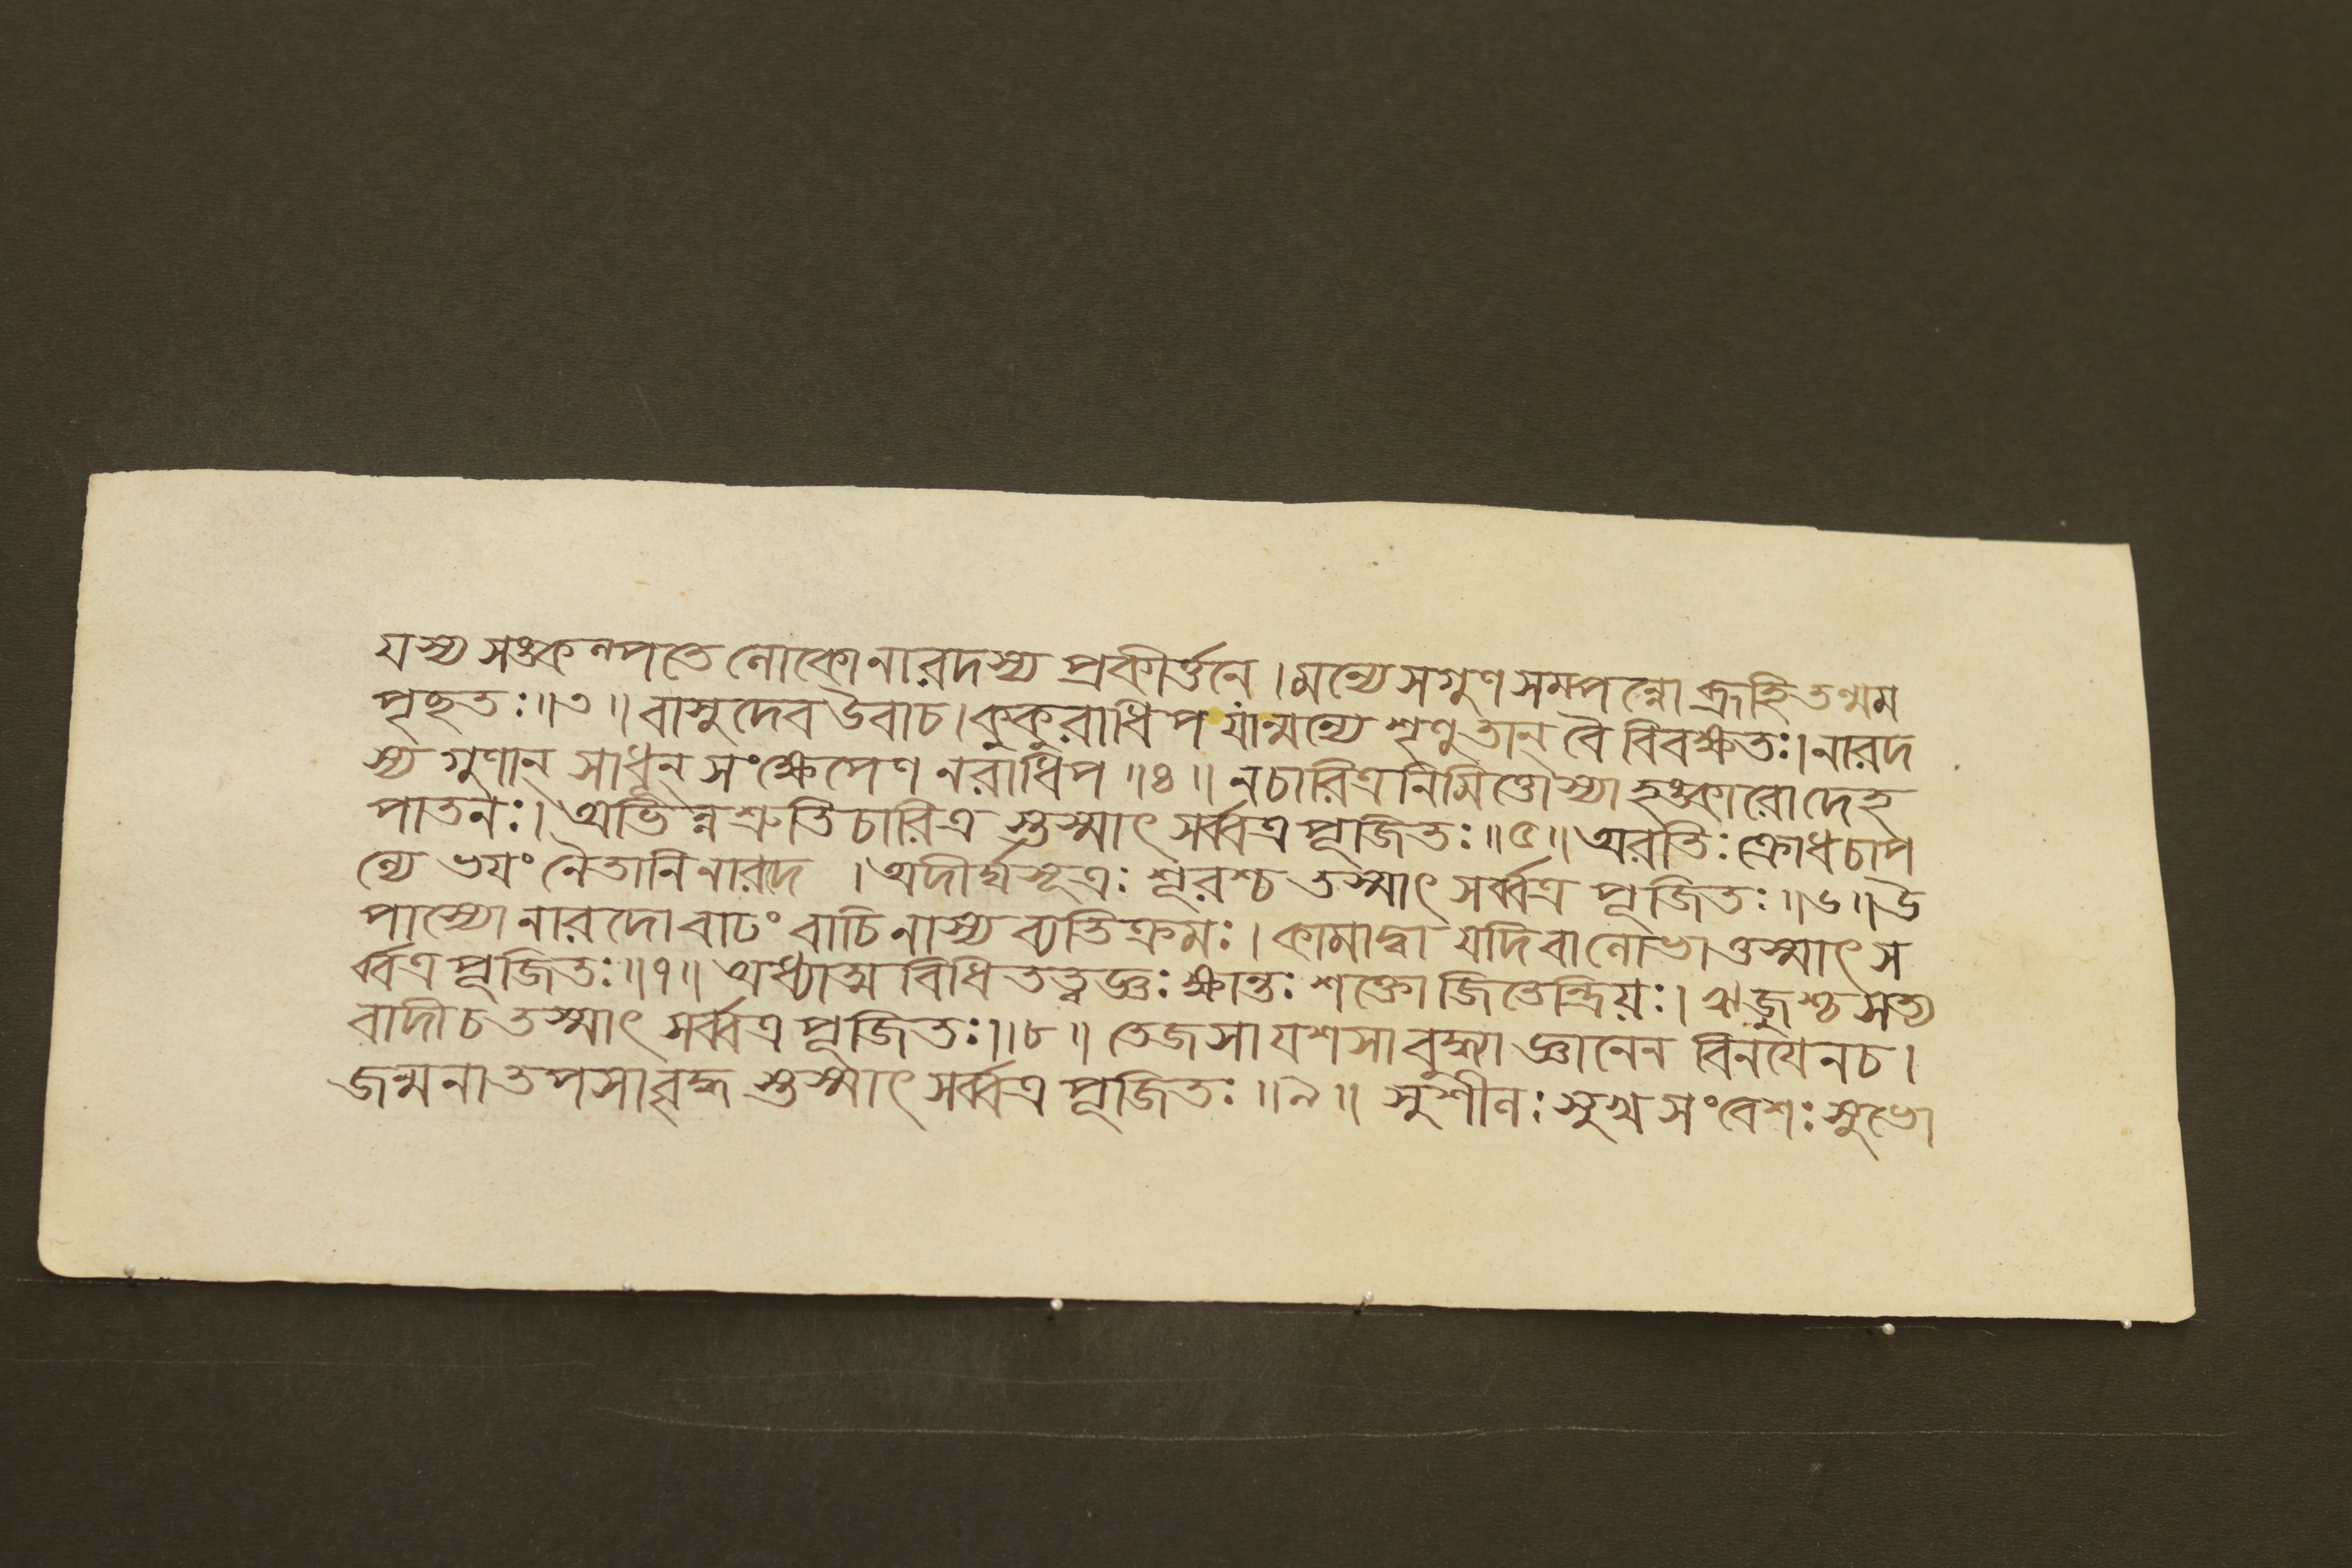 যস্য সঙ্কল্পতে লোকো নারদস্য প্রকীর্ত্তনে । মন্যে সগুণ সম্পন্নো ব্রূহি তন্মম
পৃচ্ছতঃ ॥ ৩ ॥ বাসুদেব উবাচ । কুকুরাধিপ যান্মন্যে শৃণু তান্ বৈ বিবক্ষতঃ । নারদ
স্য গুণান্ সাধূন্ সংক্ষেপেণ নরাধিপ ॥ ৪ ॥ ন চারিত্রনিমিত্তোস্যাহঙ্কারো দেহ
পাতনঃ । অভিন্নশ্রুতিচারিত্র স্তস্মাৎ সর্ব্বত্র পূজিতঃ ॥ ৫ ॥ অরতিঃ ক্রোধচাপ
ল্যে ভয়ং নৈতানি নারদে । অদীর্ঘসূত্রঃ শূরশ্চ তস্মাৎ সর্ব্বত্র পূজিতঃ ॥ ৬ ॥ উ
পাস্যো নারদো বাঢং বাচি নাস্য ব্যতিক্রমঃ । কামাদ্বা যদি বা লোভাত্তস্মাৎ স
র্ব্বত্র পূজিতঃ ॥ ৭ ॥ অধ্যাত্ম বিধি তত্ত্বজ্ঞঃ ক্ষান্তঃ শক্তো জিতেন্দ্রিয়ঃ । ঋজুশ্চ সত্য
বাদী চ তস্মাৎ সর্ব্বত্র পূজিতঃ ॥ ৮ ॥ তেজসা যশসা বুদ্ধ্যা জ্ঞানেন বিনয়েন চ ।
জন্মনা তপসা বৃদ্ধ স্তস্মাৎ সর্ব্বত্র পূজিতঃ ॥ ৯ ॥ সুশীলঃ সুখ সংবেশঃ সুভো